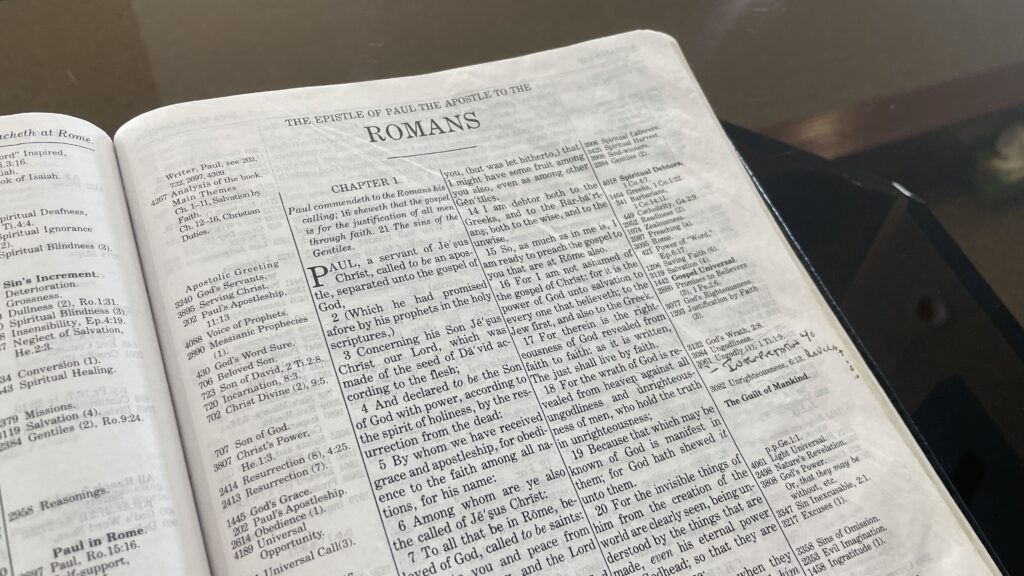 acheth at Rome.
ord" Inspired,
1.3:16.
iah.
ok of Isaiah.
piritual Deafness,
Ti.4:4.
piritual Ignorance
2).
Spiritual Blindness (3).
Sin's Increment.
Deterioration.
Grossness.
Dullness (2), Ro.1:31.
Spiritual Blindness (3).
Insensibility, Ep.4:19.
Neglect of Salvation,
He.2:3.
Conversion (1).
Spiritual Healing.
2379 Missions.
3119 Salvation (4).
2384 Gentiles (2), Ro.9:24.
2958 Reasonings.
Paul in Rome.
Paul, Ro.15:16.
lf-support,
THE EPISTLE OF PAUL THE APOSTLE TO THE
ROMANS
Writer, Paul, see 202,
732, 2697, 4309
4267 Analysis of the book.
Main Themes
Ch. 1-11, Salvation by
Faith.
Ch. 12-16, Christian
Duties.
Apostolic Greeting
3240 God's Servants.
3895 Serving Christ.
202 Paul's Apostleship.
11:13
4088 Voice of Prophets.
2890 Messianic Prophecies
(1).
430 God's Word Sure.
706 Beloved Son.
Son of David, 2 Ti.2:8.
723 Incarnation, 8:3.
702 Christ Divine (2), 9:5.
707 Son of God.
3807 Christ's Power,
He.1:3.
2414 Resurrection (8), 4:25.
2413 Resurrection (7).
1445 God's Grace.
202 Paul's Apostleship.
2614 Obedience (1).
4189 Universal
Opportunity.
Universal Call(3).
CHAPTER 1
Paul commendeth to the Romans his
calling; 16 sheweth that the gospel
is for the justification of all men
through faith. 21 The sins of the
Gentiles.
PAUL, a servant of Je´sus
Christ, called to be an apos-
tle, separated unto the gospel of
God,
2 (Which he had promised
afore by his prophets in the holy
scriptures,)
3 Concerning his Son Jē´sus
Christ our Lord, which was
made of the seed of Dā´vid ac-
cording to the flesh;
4 And declared to be the Son
of God with power, according to
the spirit of holiness, by the res-
urrection from the dead:
5 By whom we have received
grace and apostleship, for obedi-
ence to the faith among all na-
tions, for his name:
6 Among whom are ye also
the called of Jē´sus Christ:
7 To all that be in Rome, be-
loved of God, called to be saints:
you and peace from
and the Lord
you, (but was let hitherto,) that
I might have some fruit among
you also, even as among other
Gĕn´tiles.
14 I am debtor both to the
Greeks, and to the Bar-bā´ri-
ans; both to the wise, and to the
unwise.
15 So, as much as in me is, I
am ready to preach the gospel to
you that are at Rōme also.
16 For I am not ashamed of
the gospel of Christ: for it is the
power of God unto salvation to
every one that believeth; to the
Jew first, and also to the Greek.
17 For therein is the right-
eousness of God revealed from
faith to faith: as it is written,
The just shall live by faith.
18 For the wrath of God is re-
vealed from heaven against all
ungodliness and unrighteous-
ness of men, who hold the truth
in unrighteousness;
19 Because that which may be
known of God is manifest in
them; for God hath shewed it
unto them.
20 For the invisible things of
him from the creation of the
world are clearly seen, being un-
derstood by the things that are
made, even his eternal power
Godhead; so that they are
when they
Spiritual Laborers.
Spiritual Harvest.
Gentiles (2).
Spiritual Debtors.
1 Co.4:1.
Greeks, 1 Co.1:22.
Readiness (2).
Preaching
Rome.
Power of "Word."
Saving Faith (6).
Gospel Universal.
God's Righteousness.
Justification by Faith.
God's Wrath, 2:8.
Ungodliness.
Ungodly (1), 1 Ti.1:9.
Unrighteousness, 6:13.
The Guilt of Mankind.
p.p.Ge.1:1.
4061 Light Universal.
Nature's Revelation.
3808 God's Power.
Or, that they may be
without, etc.
Sin Inexcusable, 2:1.
Excuses (1).
Sins of Omission.
Evil Imagination.
1458 Ingratitude (1).